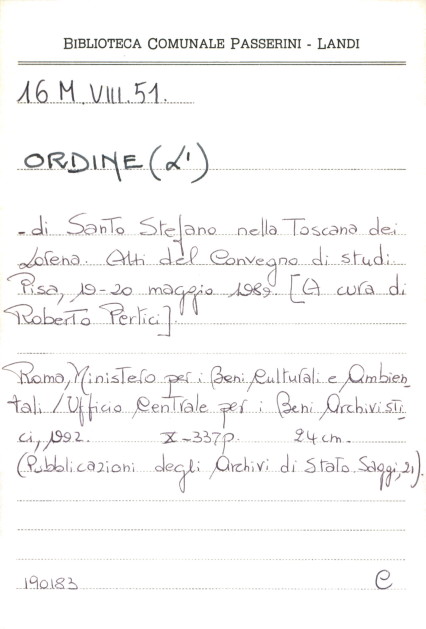 BIBLIOTECA COMUNALE PASSERINI - LANDI
16 M. VIII. 51.
ORDINE (L')
- di Santo Stefano nella Toscana dei
Lorena. Atti del Convegno di studi.
Pisa, 19-20 maggio 1989. [A cura di
Roberto Pertici].
Roma, Ministero per i Beni Culturali e Ambien-
tali / Ufficio Centrale per i Beni Archivisti-
ci, 1992. X-337p. 24 cm.
(Pubblicazioni degli Archivi di Stato. Saggi, 21).
190183 C